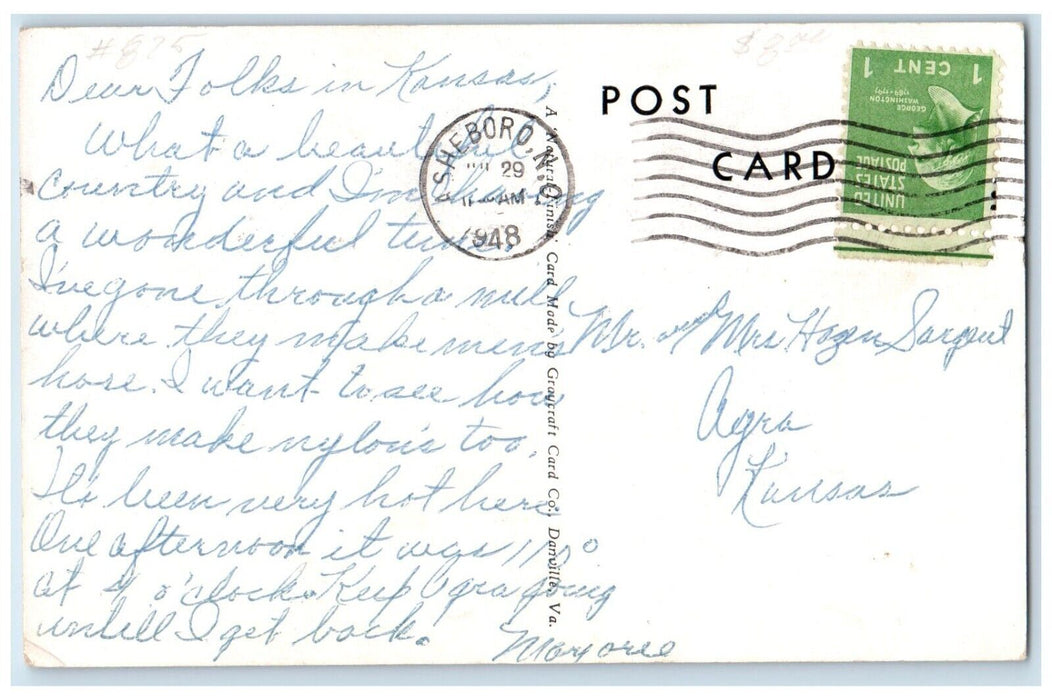 #875
$8.00
Dear Folks in Kansas,
What a beautiful
country and I'm having
a wonderful time.
I've gone through a mill
where they make men's
hose. I want to see how
they make nylons too.
It's been very hot here
One afternoon it was 110°
at 4 o'clock. Keep Agra going
untill I get back.
Marjorie
A Natural Finish Card Made by Graycraft Card Co., Danville, Va.
POST
CARD
ASHEBORO, N.C.
29
AM
1948
UNITED
STATES
POSTAGE
GEORGE
WASHINGTON
1789-1797
1 CENT 1
Mr. and Mrs Hogen Sargent
Agra
Kansas